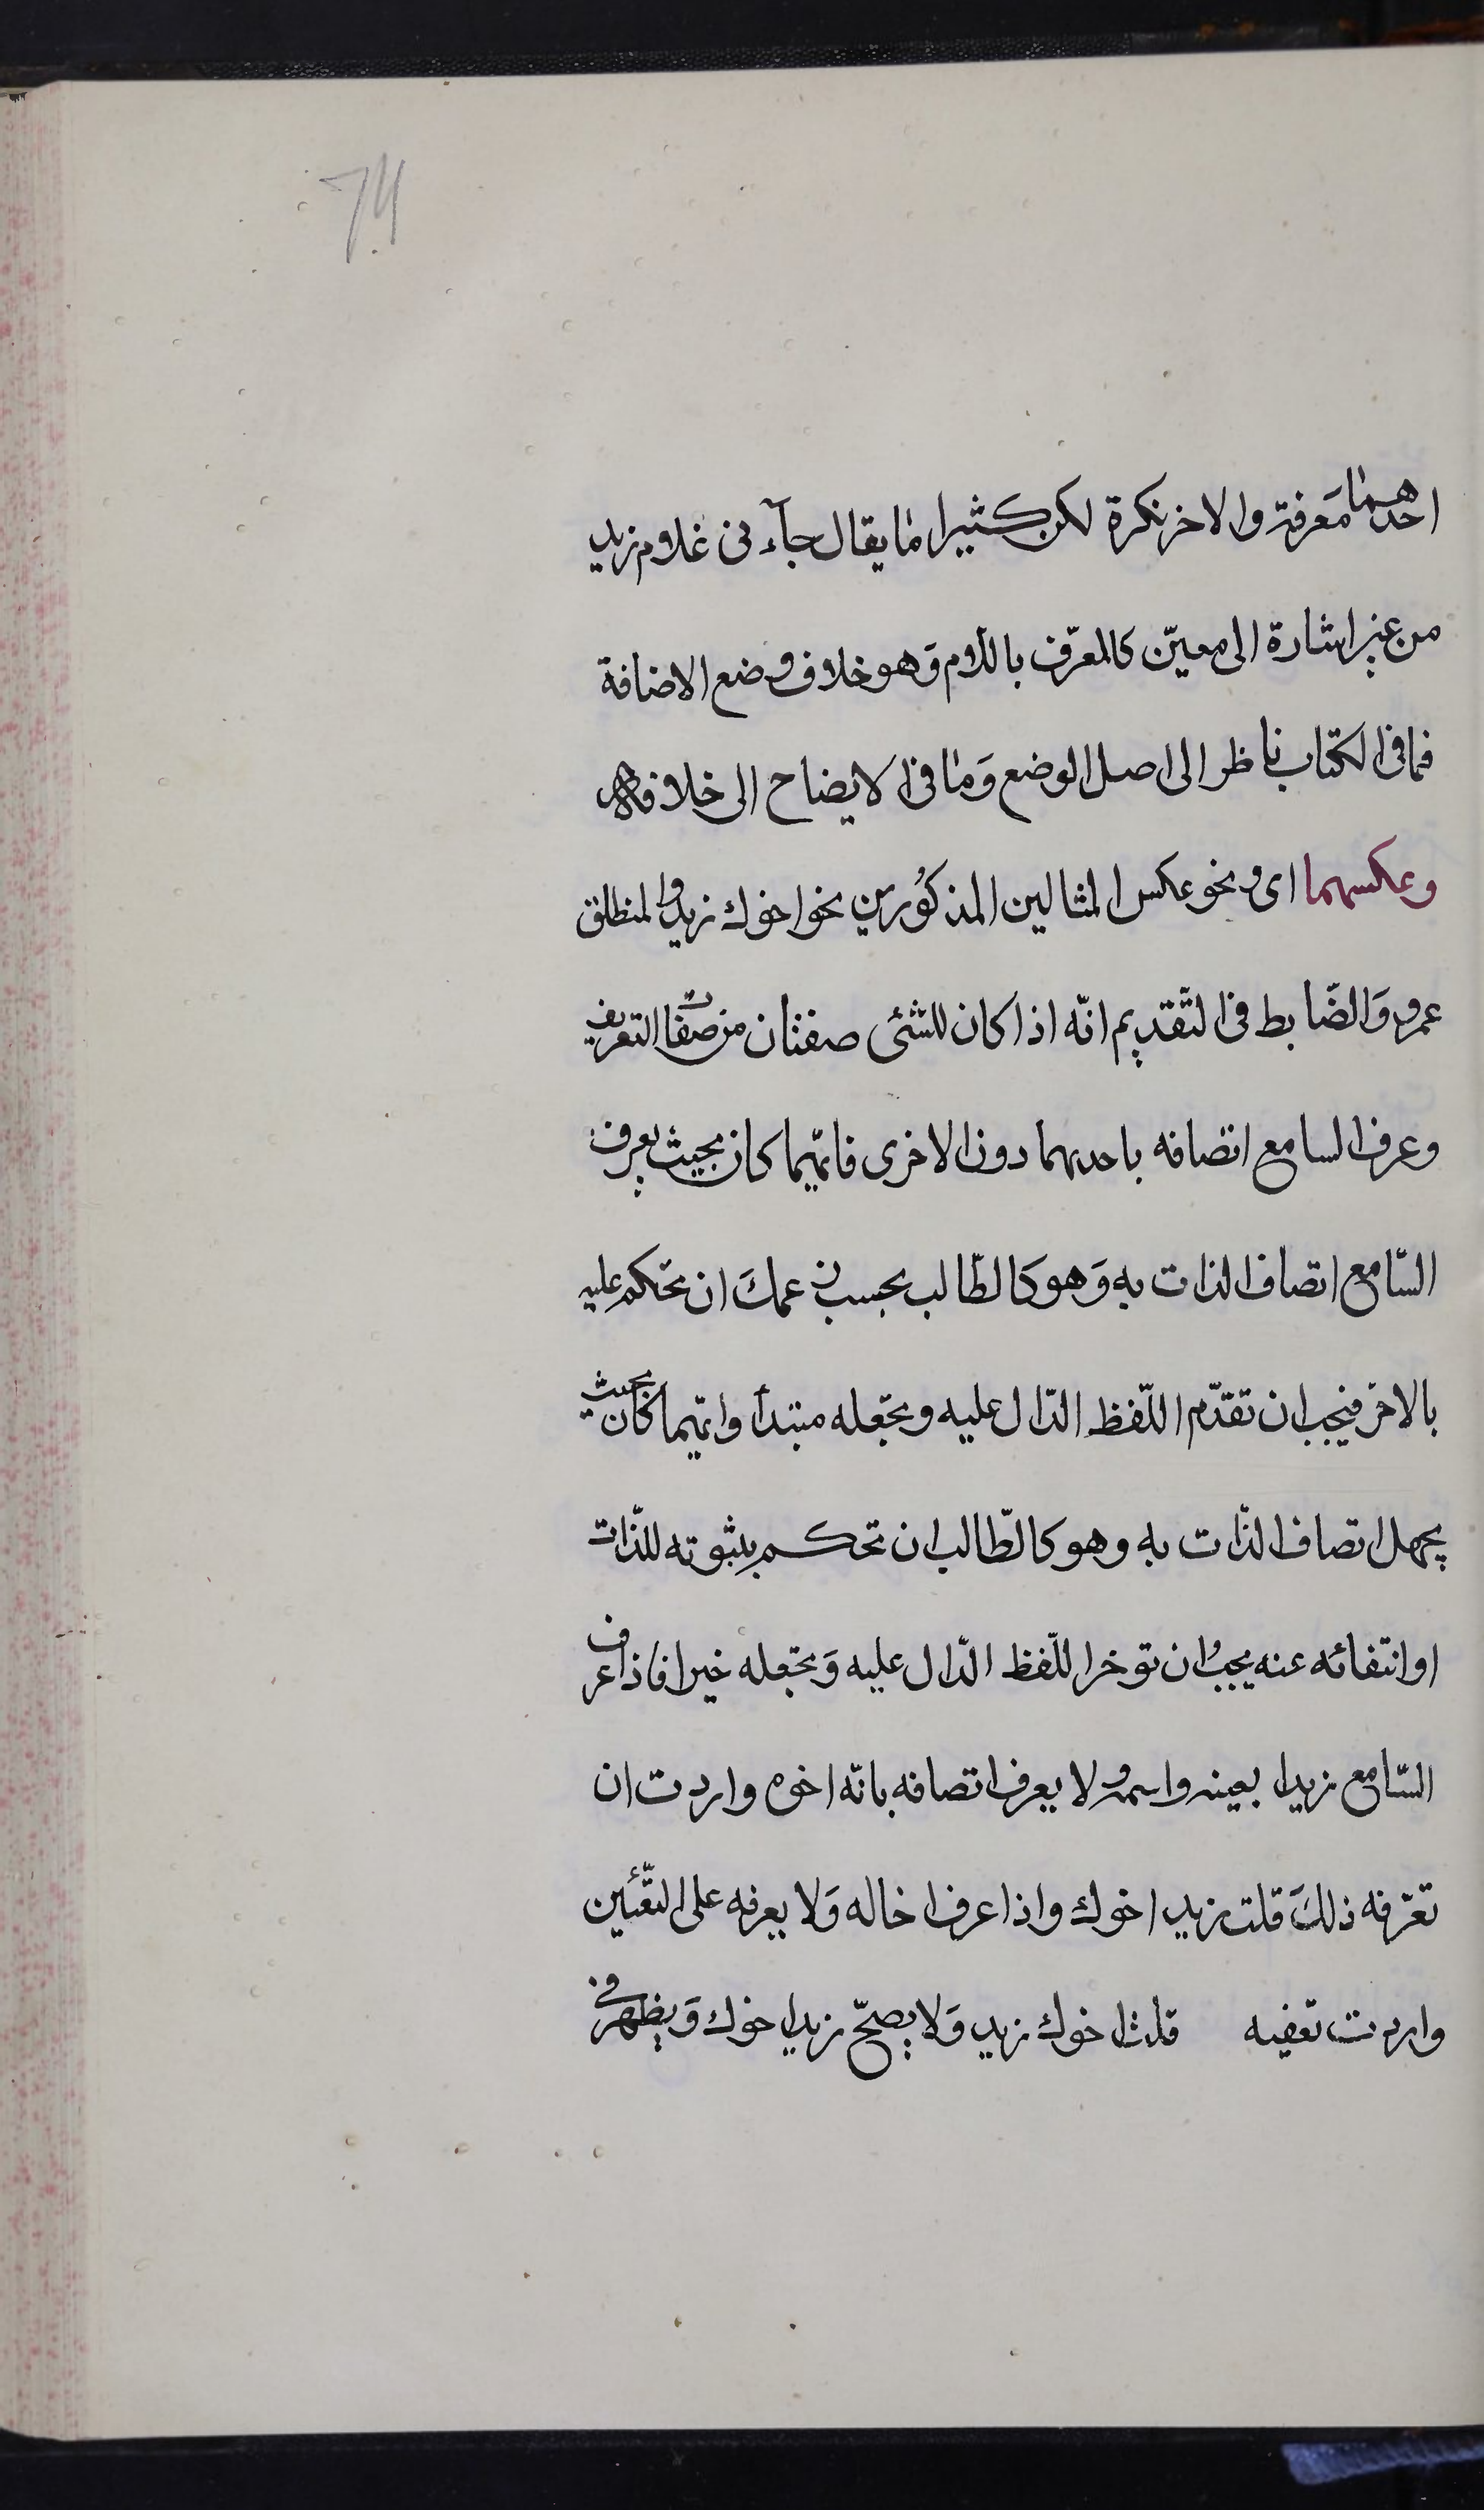 74
احدهما معرفة والاخر نكرة لكن كثيرا ما يقال جآءنى غلام زيد
من غير اشارة الى معيّن كالمعرّف باللام وَهو خلاف وضع الاضافة
فما فى الكتاب ناظر الى اصل الوضع وَما فى الايضاح الى خلافه
وعكسهما اى ونحو عكس المثالين المذكورين نحو اخوك زيد والمنطلق
عمرو وَالضّابط فى التّقديم انّه اذا كان للشّئى صفتان من صفات التعريف
وعرف السامع اتصافه باحديهما دون الاخرى فايّهما كان بحيث يعرف
السّامع اتصاف الذات به وَهو كالطّالب بحسب زعمكَ ان تحكم عليه
بالاخر فيجب ان تقدّم اللّفظ الدّال عليه وتجعله مبتدأ وايّهما كان بحيث
يجهل اتصاف الذّات به وهو كالطّالب ان تحكم بثبوته للذّات
او انتفائه عنه يجبُ ان توخر اللّفظ الدّال عليه وَتجعله خبرا فاذا عرف
السّامع زيدا بعينه واسمه ولا يعرف اتصافه بانّه اخوه واردت ان
تعرّفه ذلكَ قلت زيد اخوك واذا عرف اخاله وَلا يعرفه على التّعيين
واردت تعينه قلت اخوك زيد وَلا يصحّ زيد اخوك وَيظهر فى